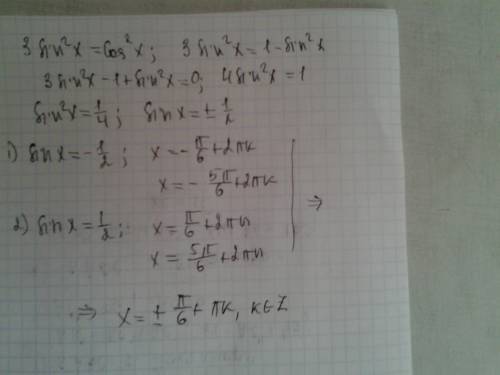 3 sin²x = cos²x; 3 sin²x = 1 - sin²x
3 sin²x - 1 + sin²x = 0; 4 sin²x = 1
sin²x = 1/4; sin x = ± 1/2
1) sin x = - 1/2; x = - π/6 + 2πk
x = - 5π/6 + 2πk
⇒
2) sin x = 1/2; x = π/6 + 2πn
x = 5π/6 + 2πn
⇒ x = ± π/6 + πk, k∈Z